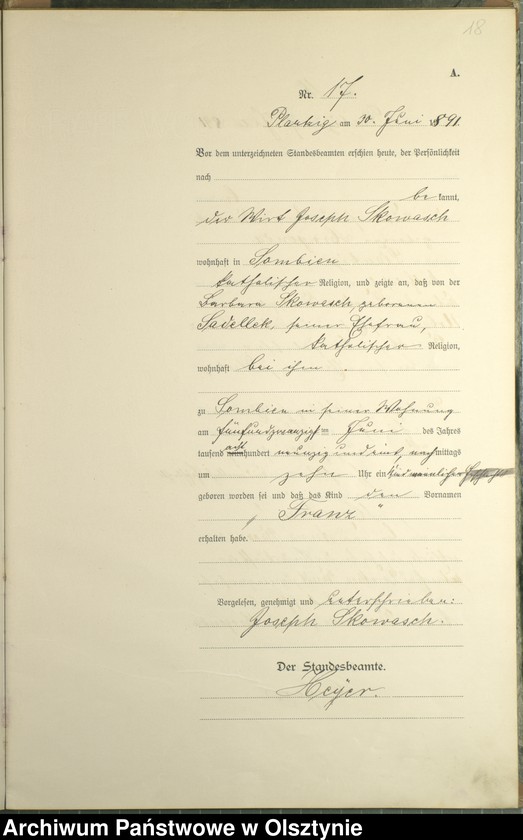 18
A.
Nr. 17.
am 30. Juni 1891
Vor dem unterzeichneten Standesbeamten erschien heute, der Persönlichkeit
nach
be kannt,
der Wirt Joseph Skowasch
wohnhaft in Sombien
katholischer Religion, und zeigte an, daß von der
Barbara Skowasch, geborenen
Sadellek, seiner Ehefrau,
katholischer Religion,
wohnhaft bei ihm
zu Sombien in seiner Wohnung
am fünfundzwanzigsten Juni des Jahres
tausend acht hundert neunzig und eins, nachmittags
um zehn Uhr ein Kind männlichen
geboren worden sei und daß das Kind den Vornamen
„Franz"
erhalten habe.
Vorgelesen, genehmigt und unterschrieben:
Joseph Skowasch.
Der Standesbeamte.
Heyer.
Archiwum Państwowe w Olsztynie